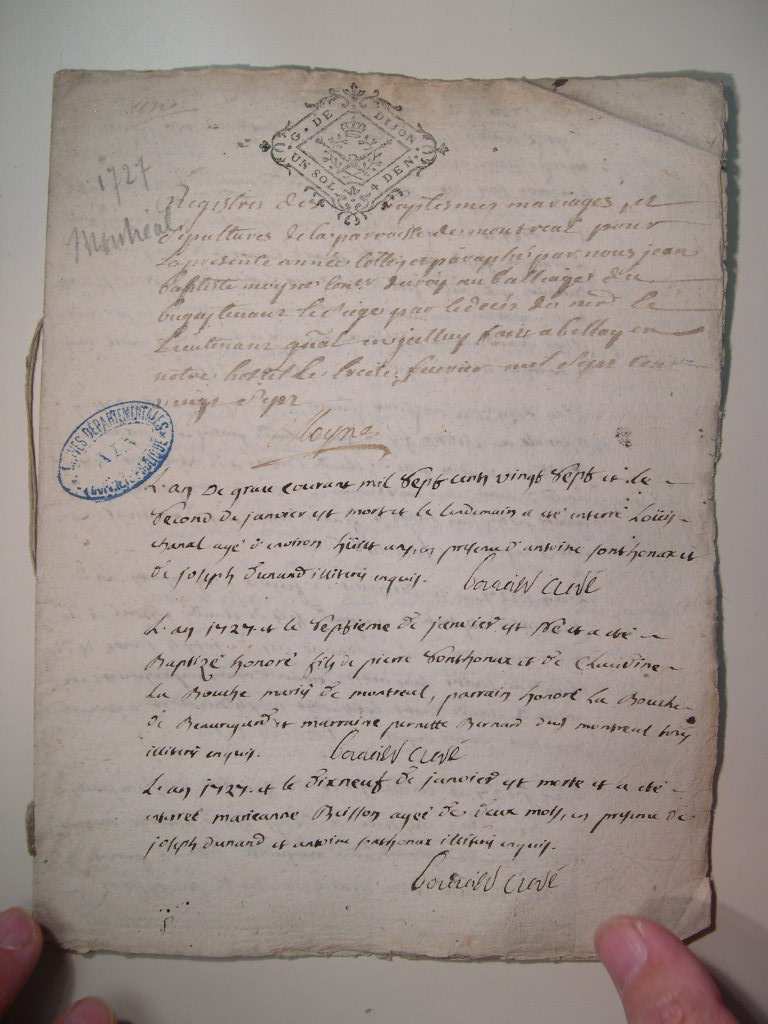 G. DE DIJON
UN SOL 4 DEN.
1727
Montréal
Registres des baptesmes mariages et
sepultures de la parroisse de montreal pour
la presente année cotté et paraphé par nous jean
baptiste moyne du roy au balliage de
par le
Lieutenant gñal
notre hostel le trente février mil sept cent
vingt sept
Moyne
ARCHIVES DÉPARTEMENTALES
AIN
L'an de grace courant mil sept cents vingt sept et le
second de janvier est mort et le lendemain a été enterré Loüis
chanal agé d'environ hüict ans, en presence d'antoine sonthonax et
de joseph Durand illiterés enquis. curé
L'an 1727 et le septieme de janvier est né et a été
Baptizé honoré fils de pierre sonthonax et de Claudine
La Bouche mariés de montreal, parrain honoré La Bouche
de et marraine pernette Bernard dud montreal tous
illiterés enquis. curé
L'an 1727 et le dixneuf de janvier est morte et a été
enterrée marieanne Buisson agée de deux mois, en presence de
joseph durand et antoine sonthonax illiterés enquis.
curé